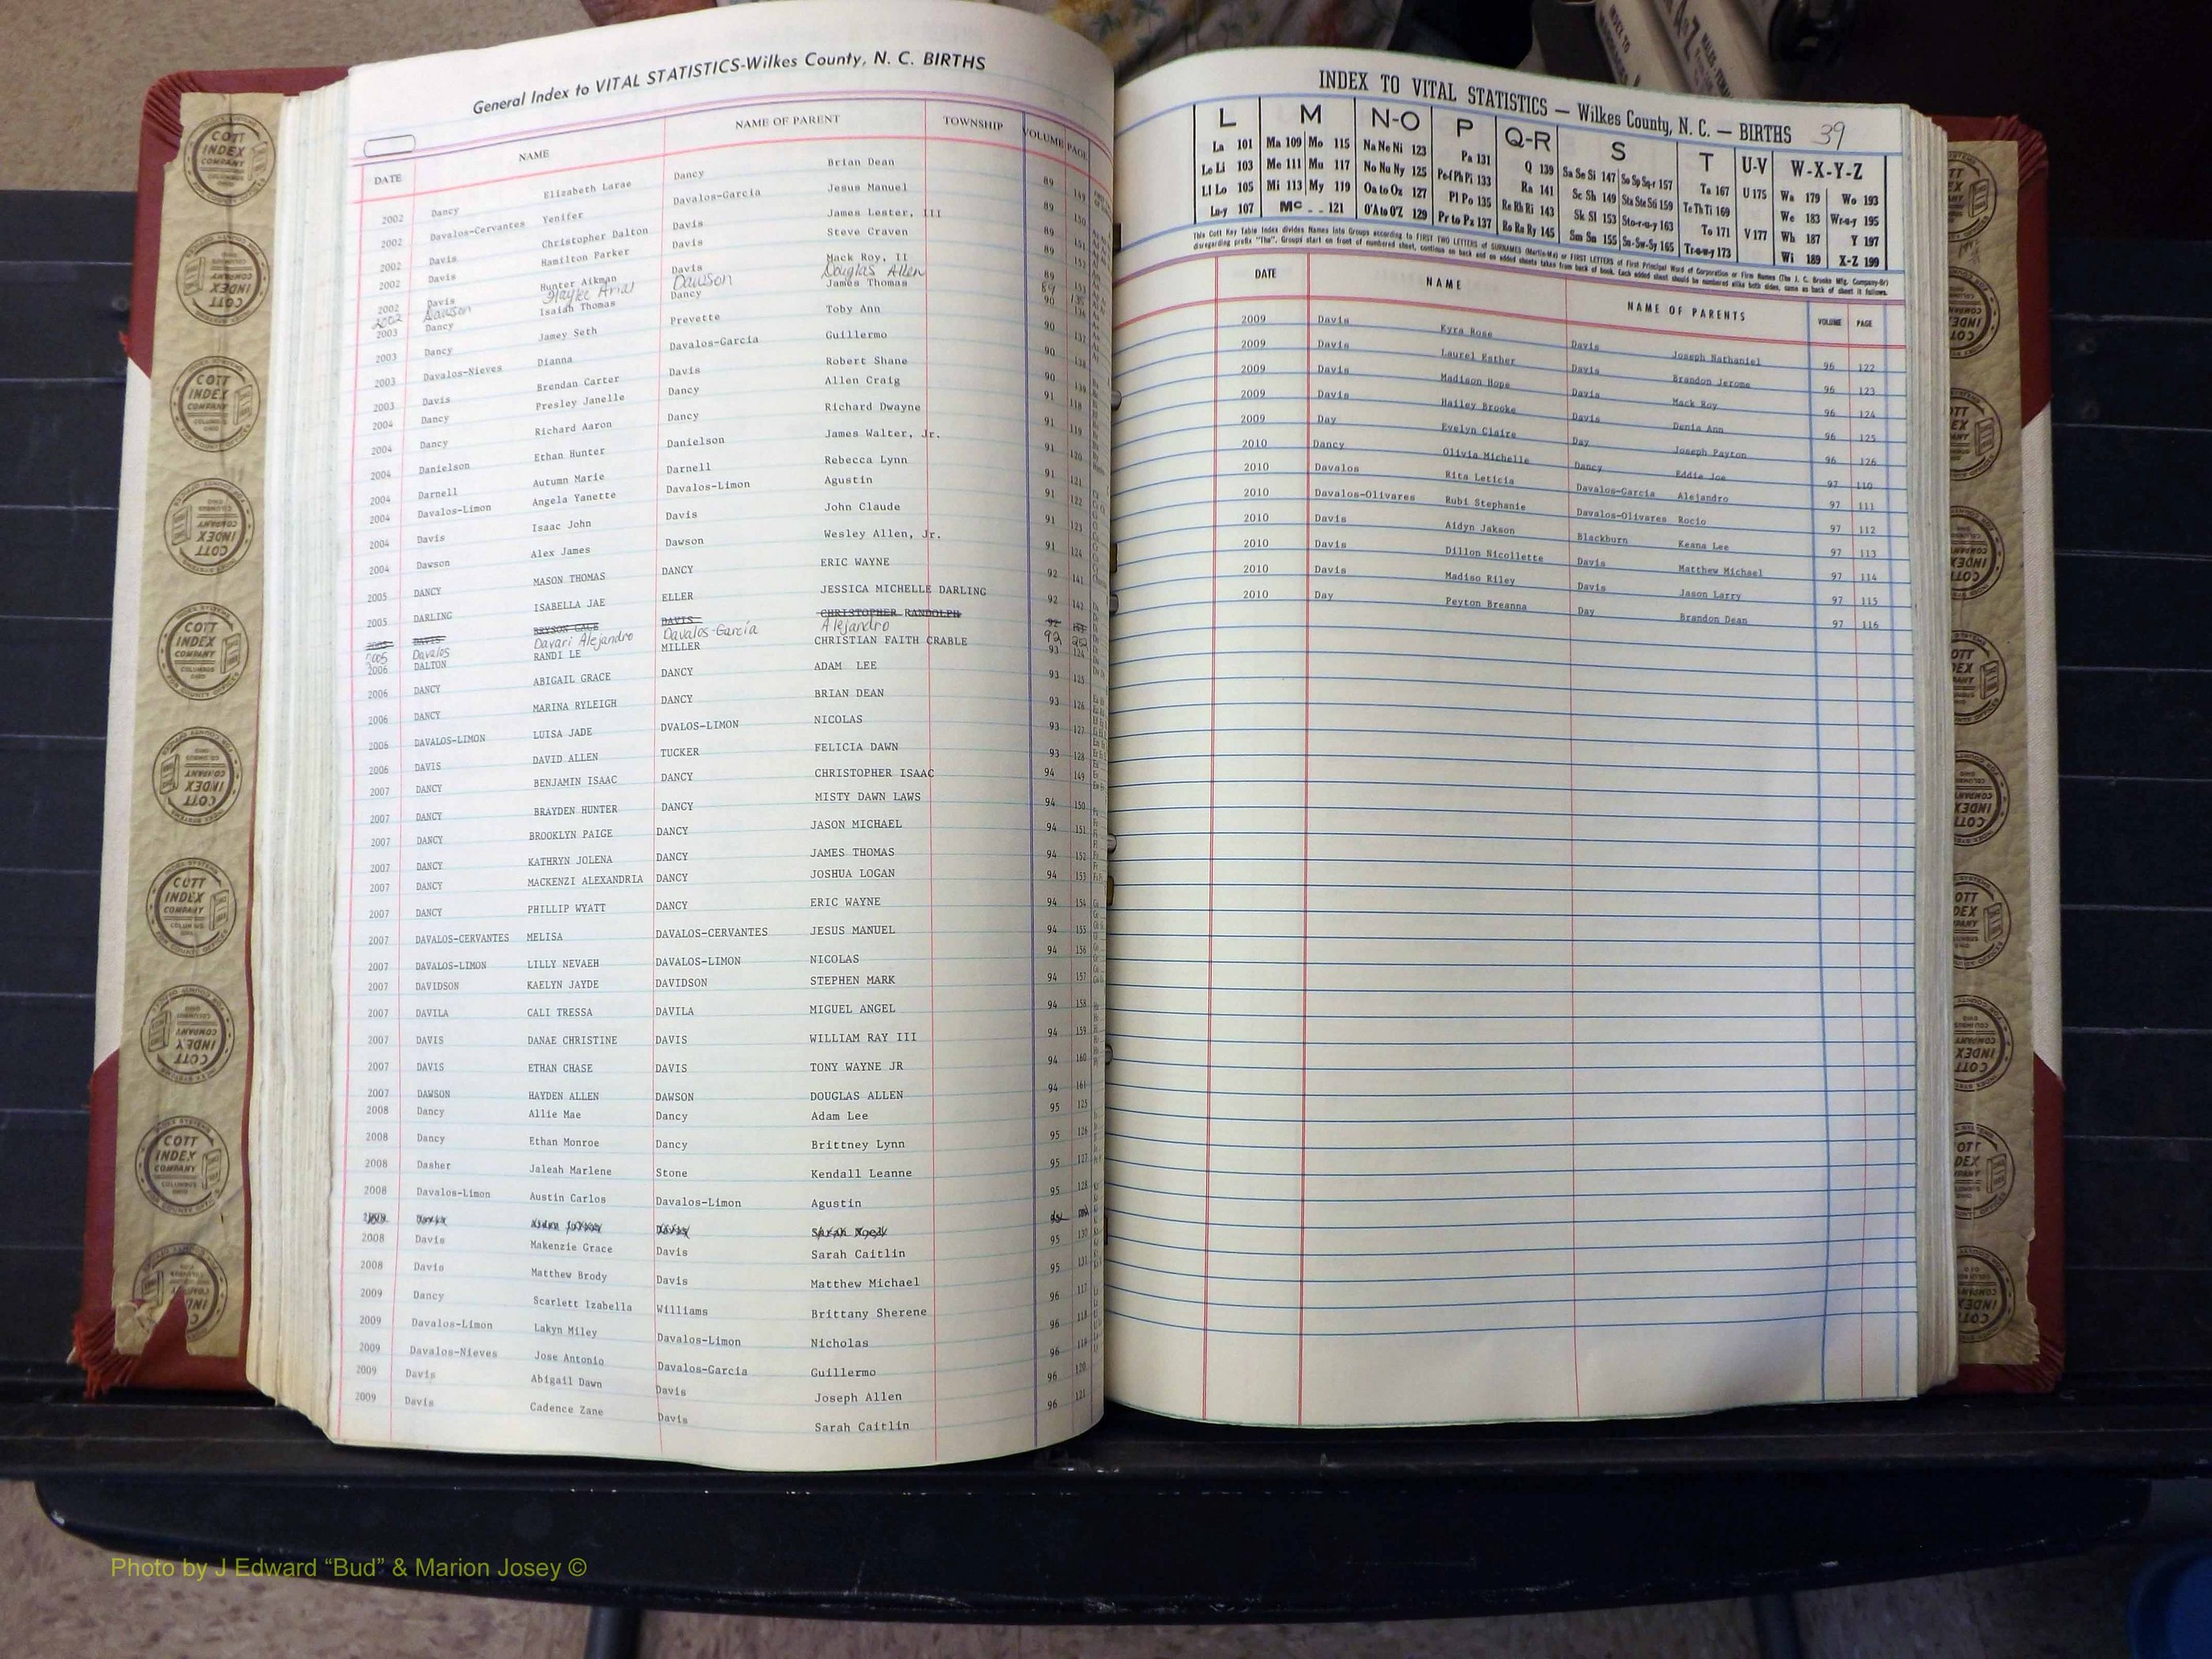 General Index to VITAL STATISTICS-Wilkes County, N. C. BIRTHS
DATE NAME NAME OF PARENT TOWNSHIP VOLUME PAGE
2002 Dancy Elizabeth Larae Dancy Brian Dean 89 149
2002 Davalos-Cervantes Yenifer Davalos-Garcia Jesus Manuel 89 150
2002 Davis Christopher Dalton Davis James Lester, III 89 151
2002 Davis Hamilton Parker Davis Steve Craven 89 152
2002 Davis Hunter Aikman Davis Mack Roy, II 89 153
2002 Dawson Arial Dawson Douglas Allen 89
2003 Dancy Isaiah Thomas Dancy James Thomas 90 136
2003 Dancy Jamey Seth Prevette Toby Ann 90 137
2003 Davalos-Nieves Dianna Davalos-Garcia Guillermo 90 138
2003 Davis Brendan Carter Davis Robert Shane 90 139
2004 Dancy Presley Janelle Dancy Allen Craig 91 118
2004 Dancy Richard Aaron Dancy Richard Dwayne 91 119
2004 Danielson Ethan Hunter Danielson James Walter, Jr. 91 120
2004 Darnell Autumn Marie Darnell Rebecca Lynn 91 121
2004 Davalos-Limon Angela Yanette Davalos-Limon Agustin 91 122
2004 Davis Isaac John Davis John Claude 91 123
2004 Dawson Alex James Dawson Wesley Allen, Jr. 91 124
2005 DANCY MASON THOMAS DANCY ERIC WAYNE 92 141
2005 DARLING ISABELLA JAE ELLER JESSICA MICHELLE DARLING 92 142
2005 DAVIS BRYSON GAGE DAVIS CHRISTOPHER RANDOLPH 92
2005 Davalos Davari Alejandro Davalos-Garcia Alejandro 92 252
2006 DALTON RANDI LE MILLER CHRISTIAN FAITH CRABLE 93 124
2006 DANCY ABIGAIL GRACE DANCY ADAM LEE 93 125
2006 DANCY MARINA RYLEIGH DANCY BRIAN DEAN 93 126
2006 DAVALOS-LIMON LUISA JADE DVALOS-LIMON NICOLAS 93 127
2006 DAVIS DAVID ALLEN TUCKER FELICIA DAWN 93 128
2007 DANCY BENJAMIN ISAAC DANCY CHRISTOPHER ISAAC 94 149
2007 DANCY BRAYDEN HUNTER DANCY MISTY DAWN LAWS 94 150
2007 DANCY BROOKLYN PAIGE DANCY JASON MICHAEL 94 151
2007 DANCY KATHRYN JOLENA DANCY JAMES THOMAS 94 152
2007 DANCY MACKENZI ALEXANDRIA DANCY JOSHUA LOGAN 94 153
2007 DANCY PHILLIP WYATT DANCY ERIC WAYNE 94 154
2007 DAVALOS-CERVANTES MELISA DAVALOS-CERVANTES JESUS MANUEL 94 155
2007 DAVALOS-LIMON LILLY NEVAEH DAVALOS-LIMON NICOLAS 94 156
2007 DAVIDSON KAELYN JAYDE DAVIDSON STEPHEN MARK 94 157
2007 DAVILA CALI TRESSA DAVILA MIGUEL ANGEL 94 158
2007 DAVIS DANAE CHRISTINE DAVIS WILLIAM RAY III 94 159
2007 DAVIS ETHAN CHASE DAVIS TONY WAYNE JR 94 160
2007 DAWSON HAYDEN ALLEN DAWSON DOUGLAS ALLEN 94 161
2008 Dancy Allie Mae Dancy Adam Lee 95 125
2008 Dancy Ethan Monroe Dancy Brittney Lynn 95 126
2008 Dasher Jaleah Marlene Stone Kendall Leanne 95 127
2008 Davalos-Limon Austin Carlos Davalos-Limon Agustin 95 128
Davis Davis Sarah
2008 Davis Makenzie Grace Davis Sarah Caitlin 95 130
2008 Davis Matthew Brody Davis Matthew Michael 95 131
2009 Dancy Scarlett Izabella Williams Brittany Sherene 96 117
2009 Davalos-Limon Lakyn Miley Davalos-Limon Nicholas 96 118
2009 Davalos-Nieves Jose Antonio Davalos-Garcia Guillermo 96 119
2009 Davis Abigail Dawn Davis Joseph Allen 96 120
2009 Davis Cadence Zane Davis Sarah Caitlin 96 121
INDEX TO VITAL STATISTICS — Wilkes County, N. C. — BIRTHS 39
L M N-O P Q-R S T U-V W-X-Y-Z
La 101 Ma 109 Mo 115 Na Ne Ni 123 Pa 131 Q 139 Sa Se Si 147 So Sp Sq-r 157 Ta 167 U 175 Wa 179 Wo 193
Le Li 103 Me 111 Mu 117 No Nu Ny 125 Pe-f Ph Pi 133 Ra 141 Sc Sh 149 Sta Ste Sti 159 Te Th Ti 169 We 183 Wr-u-y 195
Ll Lo 105 Mi 113 My 119 Oa to Oz 127 Pl Po 135 Re Rh Ri 143 Sk Sl 153 Sto-r-u-y 163 To 171 V 177 Wh 187 Y 197
Lu-y 107 Mc _ _ 121 O'A to O'Z 129 Pr to Pz 137 Ro Ru Ry 145 Sm Sn 155 Su-Sw-Sy 165 Tr-u-w-y 173 Wi 189 X-Z 199
This Cott Key Table Index divides Names into Groups according to FIRST TWO LETTERS of SURNAMES (Martin-Ma) or FIRST LETTERS of First Principal Word of Corporation or Firm Names (The J. C. Brooks Mfg. Company-Br)
disregarding prefix "The". Groups start on front of numbered sheet, continue on back and on added sheets taken from back of book. Each added sheet should be numbered alike both sides, same as back of sheet it follows.
DATE NAME NAME OF PARENTS VOLUME PAGE
2009 Davis Kyra Rose Davis Joseph Nathaniel 96 122
2009 Davis Laurel Esther Davis Brandon Jerome 96 123
2009 Davis Madison Hope Davis Mack Roy 96 124
2009 Davis Hailey Brooke Davis Denia Ann 96 125
2009 Day Evelyn Claire Day Joseph Payton 96 126
2010 Dancy Olivia Michelle Dancy Eddie Joe 97 110
2010 Davalos Rita Leticia Davalos-Garcia Alejandro 97 111
2010 Davalos-Olivares Rubi Stephanie Davalos-Olivares Rocio 97 112
2010 Davis Aidyn Jakson Blackburn Keana Lee 97 113
2010 Davis Dillon Nicollette Davis Matthew Michael 97 114
2010 Davis Madiso Riley Davis Jason Larry 97 115
2010 Day Peyton Breanna Day Brandon Dean 97 116
COTT INDEX COMPANY COLUMBUS OHIO
FOR COUNTY OFFICES
Photo by J Edward “Bud” & Marion Josey ©